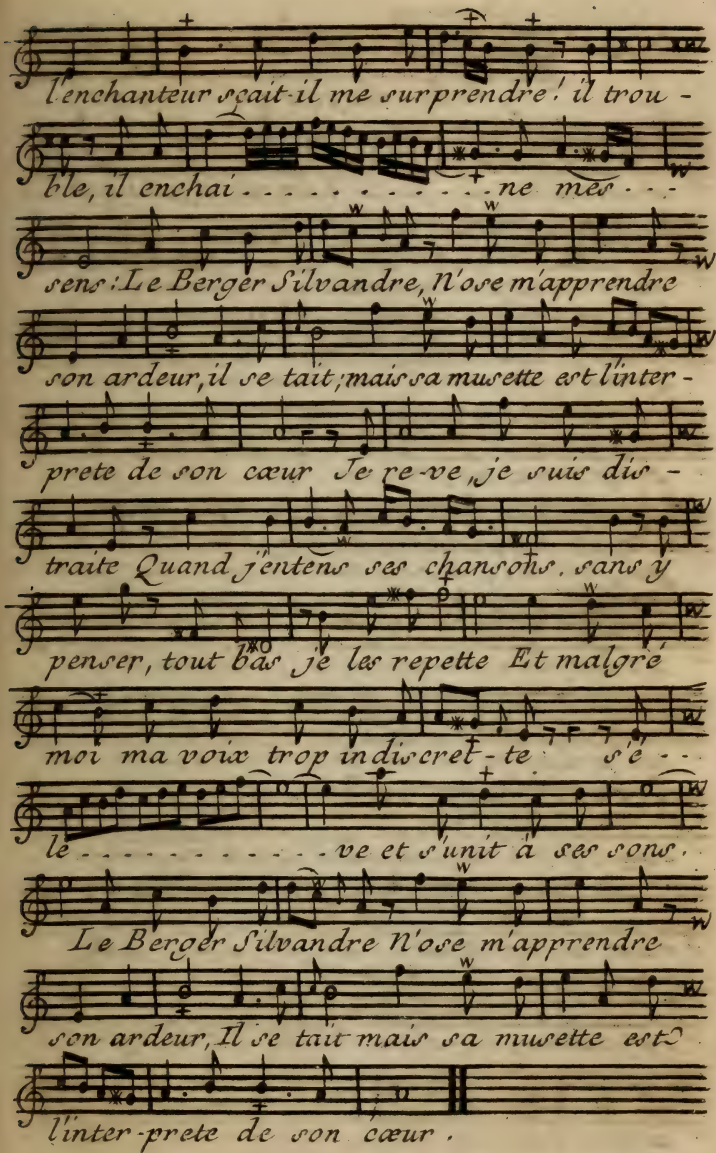 l'enchanteur sçait-il me surprendre! il trou -
ble, il enchai . . . . . . . . . . . ne mes . . .
sens: Le Berger Silvandre, N'ose m'apprendre
son ardeur, il se tait; mais sa musette est l'inter -
prete de son cœur Je re-ve, je suis dis -
traite Quand j'entens ses chansons. sans y
penser, tout bas je les repette Et malgré
moi ma voix trop indiscret-te s'é . .
le . . . . . . . . . . . ve et s'unit à ses sons.
Le Berger Silvandre N'ose m'apprendre
son ardeur, Il se tait mais sa musette est
l'inter-prete de son cœur .